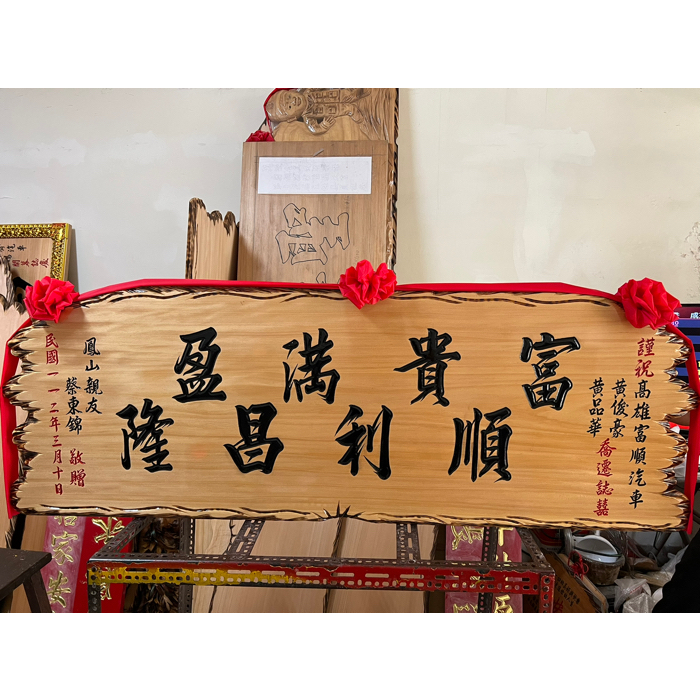 謹祝高雄富順汽車
黃俊豪
黃品華
喬遷誌囍
富貴滿盈
順利昌隆
鳳山親友
蔡東錦
敬贈
民國一一二年三月十日